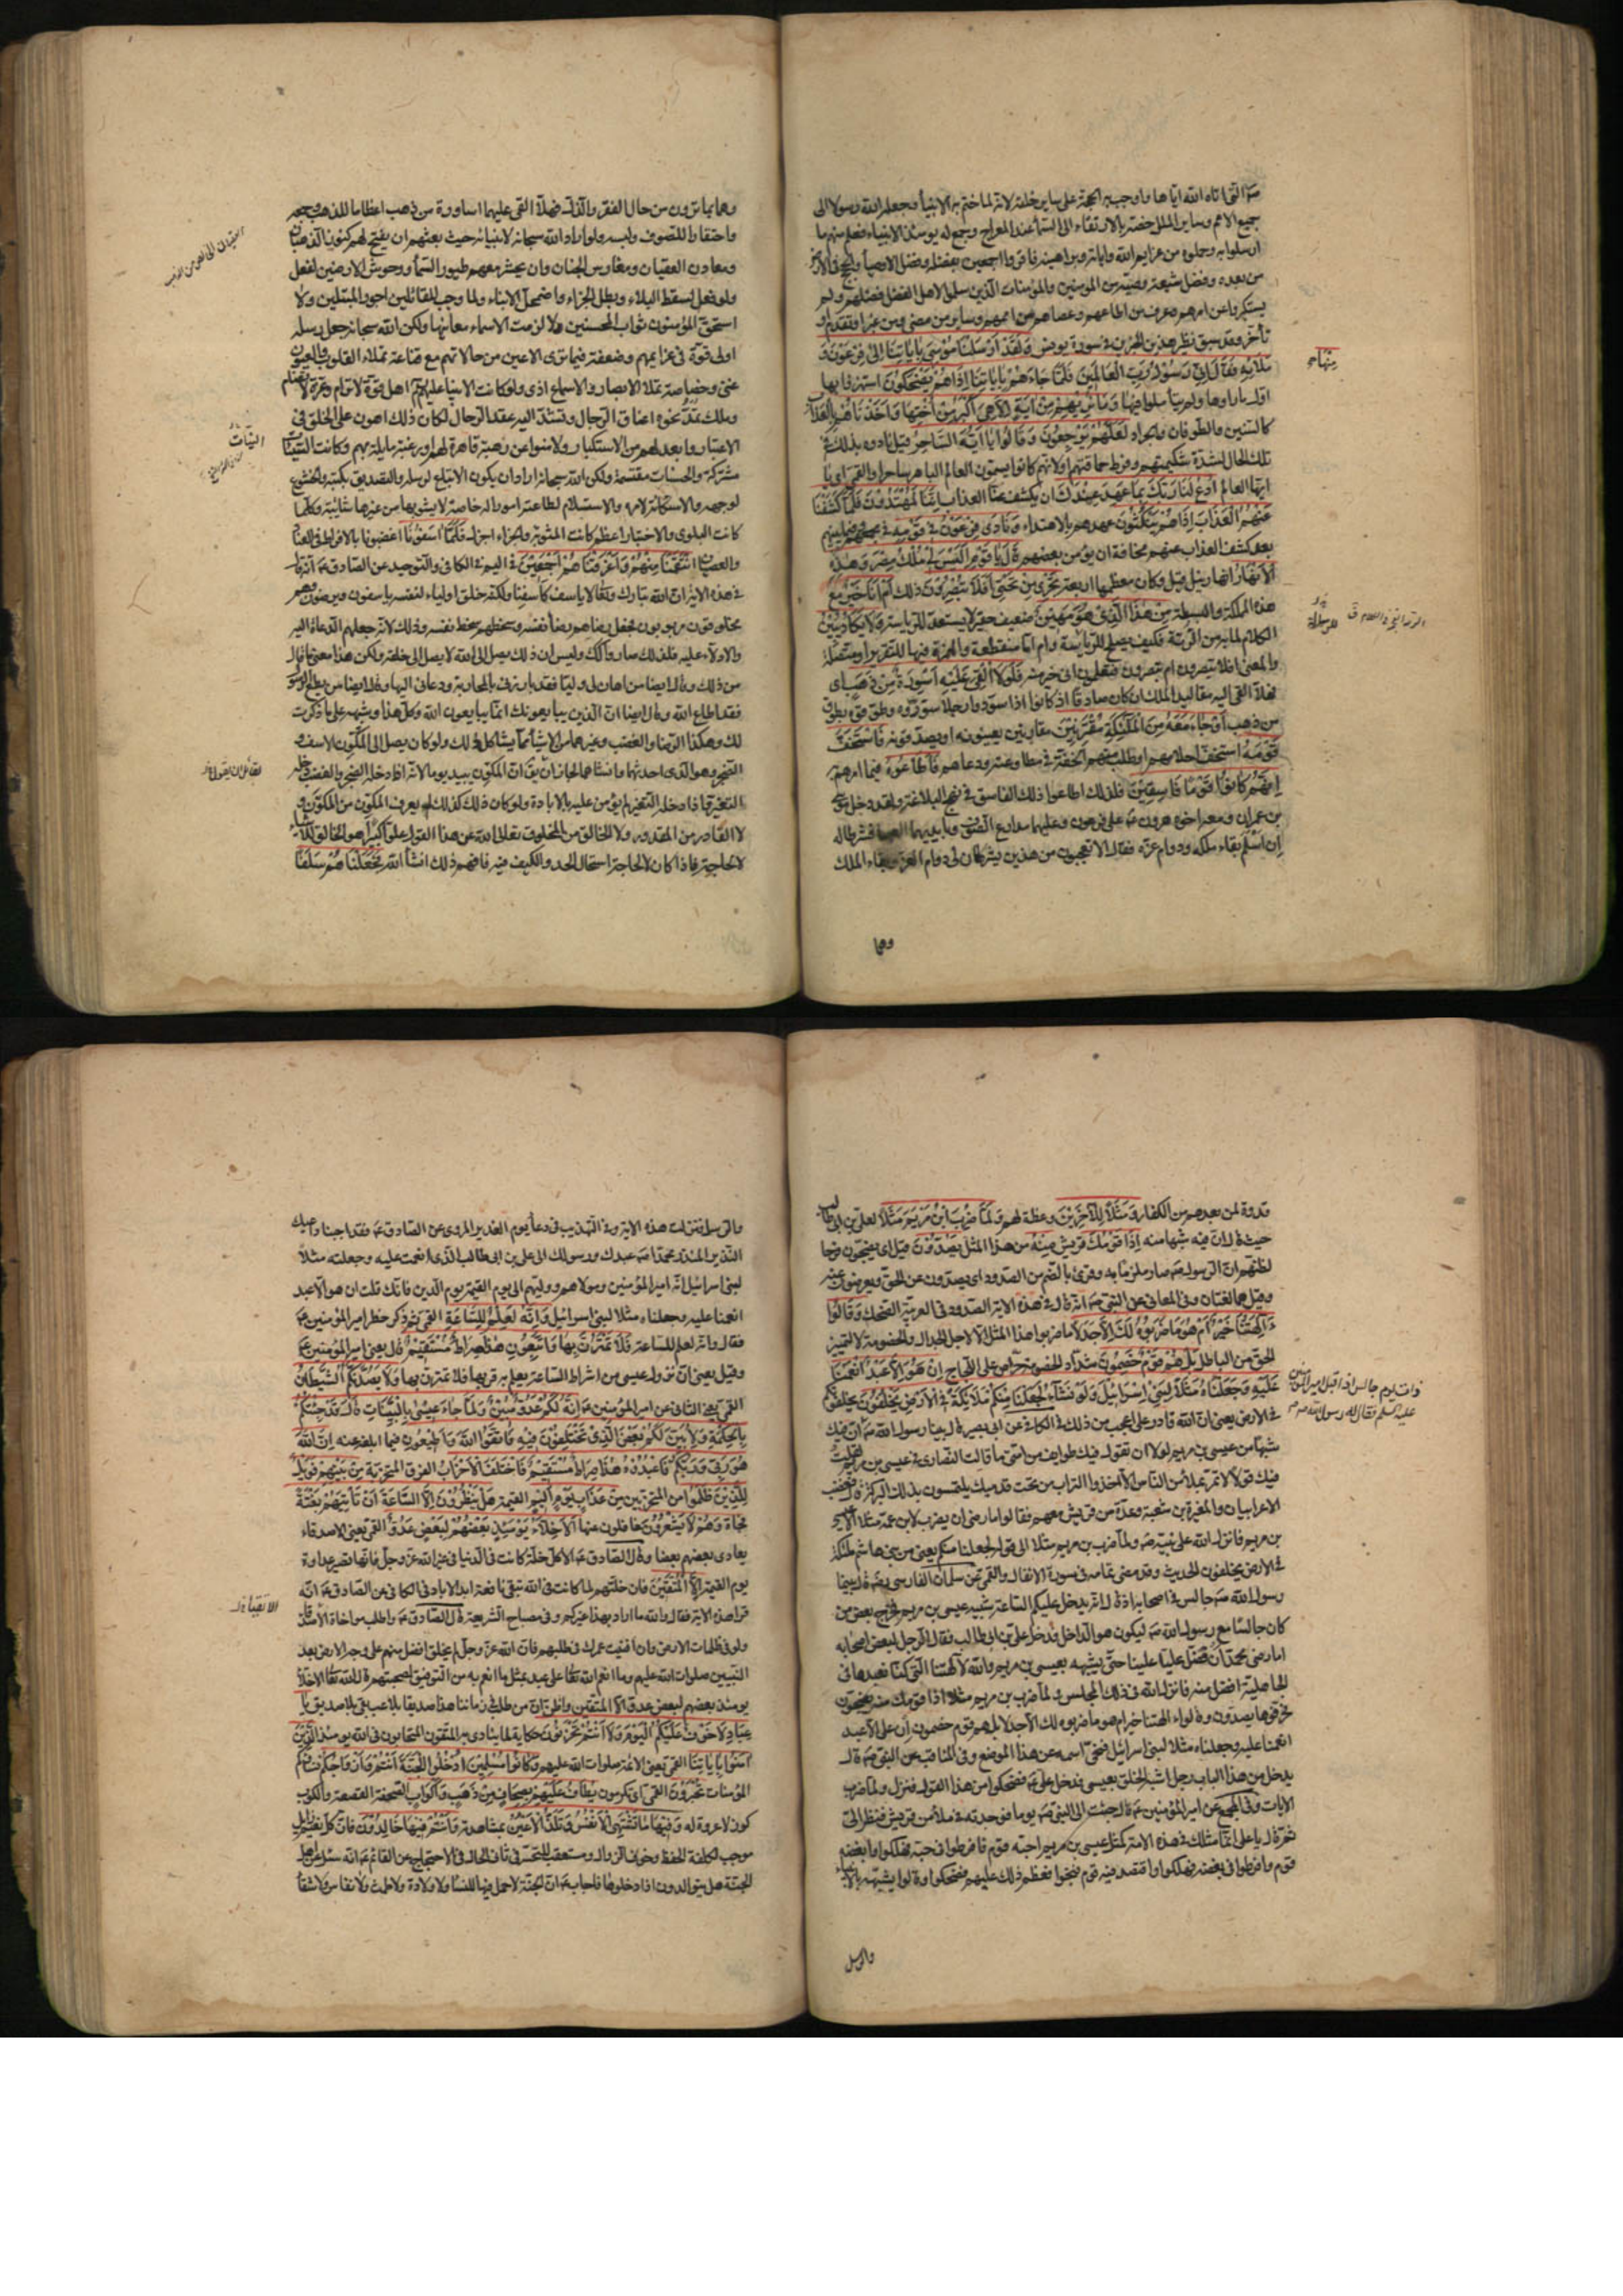 صم التى اتاه الله اياها واوجب به الحجة على ساير خلقه لانه لما ختم به الانبياء وجعله الله رسولا الى
جميع الامم وساير الملل خصه بالارتقاء الى السماء عند المعراج وجمع له يومئذ الانبياء فعلم منهم ما
ارسلوا به وحملوه من عزايم الله واياته وبراهينه فاقروا اجمعين بفضله وفضل الاوصياء والحجج فى الارض
من بعده وفضل شيعة وصيه من المؤمنين والمؤمنات الذين سلموا لاهل الفضل فضلهم ولم
يستكبروا عن امرهم وعرف من اطاعهم وعصاهم من اممهم وساير من مضى ومن غبر او تقدم او
تأخر وقد سبق نظير هذين الخبرين فى سورة يونس وَلَقَدْ اَرْسَلْنَا مُوْسَى بِاٰيَاتِنَا اِلىٰ فِرْعَوْنَ وَ
مَلَائِهِ فَقَالَ اِنِّى رَسُوْلُ رَبِّ الْعَالَمِيْنَ فَلَمَّا جَاءَهُمْ بِاٰيَاتِنَا اِذَا هُمْ مِنْهَا يَضْحَكُوْنَ استهزؤا بها
اول ما راوها ولم يتأملوا فيها وَمَا نُرِيْهِمْ مِنْ اٰيَةٍ اِلَّا هِىَ اَكْبَرُ مِنْ اُخْتِهَا وَاَخَذْنَاهُمْ بِالْعَذَابِ
كالسنين والطوفان والجراد لَعَلَّهُمْ يَرْجِعُوْنَ وَقَالُوْا يَا اَيُّهَ السَّاحِرُ قيل نادوه بذلك فى
تلك الحال لشدة شكيمتهم وفرط حماقتهم او لانهم كانوا يسمون العالم الباهر ساحرا والقمى اى يا
ايها العالم اُدْعُ لَنَا رَبَّكَ بِمَا عَهِدَ عِنْدَكَ ان يكشف عنا العذاب اِنَّنَا لَمُهْتَدُوْنَ فَلَمَّا كَشَفْنَا
عَنْهُمُ الْعَذَابَ اِذَا هُمْ يَنْكُثُوْنَ عهدهم بالاهتداء وَنَادىٰ فِرْعَوْنُ فِىْ قَوْمِهِ فى مجمعهم وفيما بينهم
بعد كشف العذاب عنهم مخافة ان يؤمن بعضهم قَالَ يَا قَوْمِ اَلَيْسَ لِىْ مُلْكُ مِصْرَ وَهٰذِهِ
الْاَنْهَارُ انهار نيل قيل وكان معظمها اربعة تَجْرِىْ مِنْ تَحْتِىْ اَفَلَا تُبْصِرُوْنَ ذلك اَمْ اَنَا خَيْرٌ مع
هذه المملكة والبسطة مِنْ هٰذَا الَّذِىْ هُوَ مَهِيْنٌ ضعيف حقير لا يستعد للرياسة وَلَا يَكَادُ يُبِيْنُ
الكلام لما به من الرتة فكيف يصلح للرياسة وام اما منقطعة والهمزة فيها للتقرير او متصلة
والمعنى افلا تبصرون ام تبصرون فتعلمون انى خير منه فَلَوْلَا اُلْقِىَ عَلَيْهِ اَسْوِرَةٌ مِنْ ذَهَبٍ اى
فهلا القى اليه مقاليد الملك ان كان صادقا اذ كانوا اذا سودوا رجلا سوروه وطوقوه بطوق
من ذهب اَوْ جَاءَ مَعَهُ مِنَ الْمَلٰئِكَةِ مُقْتَرِنِيْنَ مقارنين يعينونه او يصدقونه فَاسْتَخَفَّ
قَوْمَهُ استخف احلامهم او طلب منهم الخفة فى مطاوعته ودعاهم فَاَطَاعُوْهُ فيما امرهم
اِنَّهُمْ كَانُوْا قَوْمًا فَاسِقِيْنَ فلذلك اطاعوا ذلك الفاسق فى نهج البلاغة ولقد دخل موسى
بن عمران ومعه اخوه هرون عم على فرعون وعليهما مدارع الصوف وبايديهما العصا فشرطا له
اِن اسْلَم بقاء ملكه ودوام عزه فقال الا تعجبون من هذين يشرطان لى دوام العز وبقاء الملك
منهاء
وهما
وهما بما ترون من حال الفقر والذل فهلا القى عليهما اساورة من ذهب اعظاما للذهب وجمعه
واحتقارا للصوف ولبسه ولو اراد الله سبحانه لانبيائه حيث بعثهم ان يفتح لهم كنوز الذهبان
ومعادن العقيان ومغارس الجنان وان يحشر معهم طيور السماء ووحوش الارضين لفعل
ولو فعل لسقط البلاء وبطل الجزاء واضمحل الانباء ولما وجب للقائلين اجور المبتلين ولا
استحق المؤمنون ثواب المحسنين ولا لزمت الاسماء معانيها ولكن الله سبحانه جعل رسله
اولى قوة فى عزايمهم وضعفة فيما ترى الاعين من حالاتهم مع قناعة تملاء القلوب والعيون
غنى وخصاصة تملاء الابصار والاسماع اذى ولو كانت الانبياء عليهم السلام اهل قوة لا ترام وعزة لا تضام
وملك تمتد نحوه اعناق الرجال وتشد اليه عقد الرحال لكان ذلك اهون على الخلق فى
الاعتبار وابعد لهم من الاستكبار ولامنوا عن رهبة قاهرة لهم او رغبة مايلة بهم وكانت السيئات
مشتركة والحسنات مقتسمة ولكن الله سبحانه اراد ان يكون الاتباع لرسله والتصديق بكتبه والخشوع
لوجهه والاستكانة لامره والاستسلام لطاعته امورا له خاصة لا يشوبها من غيرها شائبة وكلما
كانت البلوى والاختبار اعظم كانت المثوبة والجزاء اجزل فَلَمَّا اٰسَفُوْنَا اغضبونا بالافراط فى العناد
والعصيان اِنْتَقَمْنَا مِنْهُمْ وَاَغْرَقْنَاهُمْ اَجْمَعِيْنَ فى اليم فى الكافى والتوحيد عن الصادق عم انه قال
فى هذه الاية ان الله تبارك وتعالى لا ياسف كاسفنا ولكنه خلق اولياء لنفسه ياسفون ويرضون وهم
مخلوقون مربوبون فجعل رضاهم رضا نفسه وسخطهم سخط نفسه وذلك لانه جعلهم الدعاة اليه
والادلاء عليه فلذلك صاروا كذلك وليس ان ذلك يصل الى الله لا يصل الى خلقه ولكن هذا معنى ما قال
من ذلك وقال ايضا من اهان لى وليا فقد بارزنى بالمحاربة ودعانى اليها وقال ايضا من يطع الرسول
فقد اطاع الله وقال ايضا ان الذين يبايعونك انما يبايعون الله وكل هذا وشبهه على ما ذكرت
لك وهكذا الرضا والغضب وغيرهما من الاشياء مما يشاكل ذلك ولو كان يصل الى المكون الاسف و
الضجر وهو الذى احدثهما وانشاهما لجاز ان يق ان المكون يبيد يوما لانه اذا دخله الضجر والغضب دخله
التغير فاذا دخله التغير لم يؤمن عليه بالابادة ولو كان ذلك كذلك لم يعرف المكون من المكون و
لا القادر من المقدور ولا الخالق من المخلوق تعالى الله عن هذا القول علوا كبيرا هو الخالق للاشياء
لا لحاجة فاذا كان لا لحاجة استحال الحد والكيف فيه فافهم ذلك انشاء الله فَجَعَلْنَاهُمْ سَلَفًا
قدوة لمن بعدهم من الكفار وَمَثَلًا لِلْاٰخِرِيْنَ وعظة لهم وَلَمَّا ضُرِبَ ابْنُ مَرْيَمَ مَثَلًا لعلى بن ابى طالب
حيث قال ان فيه شبها منه اِذَا قَوْمُكَ قريش مِنْهُ من هذا المثل يَصِدُّوْنَ قيل اى يضجون فرحا
لظنهم ان الرسول صم صار ملزما به وقرئ بالضم من الصدود اى يصدون عن الحق ويعرضون عنه
وقيل هما لغتان وفى المعانى عن النبى صم انه قال فى هذه الاية الصدود فى العربية الضحك وَقَالُوْا
ءَاٰلِهَتُنَا خَيْرٌ اَمْ هُوَ مَا ضَرَبُوْهُ لَكَ اِلَّا جَدَلًا ما ضربوا هذا المثل الا لاجل الجدال والخصومة لا لتمييز
الحق من الباطل بَلْ هُمْ قَوْمٌ خَصِمُوْنَ شداد الخصومة حراص على اللجاج اِنْ هُوَ اِلَّا عَبْدٌ اَنْعَمْنَا
عَلَيْهِ وَجَعَلْنَاهُ مَثَلًا لِبَنِىْ اِسْرَائِيْلَ وَلَوْ نَشَاءُ لَجَعَلْنَا مِنْكُمْ مَلَائِكَةً فِى الْاَرْضِ يَخْلُفُوْنَ يخلفونكم
فى الارض يعنى ان الله قادر على اعجب من ذلك فى الكافى عن ابى بصير قال بينا رسول الله صم ان فيك
شبها من عيسى بن مريم لولا ان تقول فيك طوايف من امتى ما قالت النصارى فى عيسى بن مريم لقلت
فيك قولا لا تمر بملاء من الناس الا اخذوا التراب من تحت قدميك يلتمسون بذلك البركة قال فغضب
الاعرابيان والمغيرة بن شعبة وعدة من قريش معهم فقالوا ما رضى ان يضرب لابن عمه مثلا الا عيسى
بن مريم فانزل الله على نبيه صم ولما ضرب بن مريم مثلا الى قوله لجعلنا منكم يعنى من بنى هاشم ملئكة
فى الارض يخلفون الحديث وقد مضى تمامه فى سورة الانفال والقمى عن سلمان الفارسى رضه قال بينما
رسول الله صم جالس فى اصحابه اذ قال انه يدخل عليكم الساعة شبيه عيسى بن مريم فخرج بعض من
كان جالسا مع رسول الله صم ليكون هو الداخل فدخل على بن ابى طالب فقال الرجل لبعض اصحابه
اما رضى محمد ان فضل عليا علينا حتى يشبهه بعيسى بن مريم والله لالهتنا التى كنا نعبدها فى
الجاهلية افضل منه فانزل الله فى ذلك المجلس ولما ضرب بن مريم مثلا اذا قومك منه يضجون
فحرفوها يصدون وقالوا ءالهتنا خير ام هو ما ضربوه لك الا جدلا بل هم قوم خصمون ان على الا عبد
انعمنا عليه وجعلناه مثلا لبنى اسرائيل فمحى اسمه عن هذا الموضع وفى المناقب عن النبى صم قال
يدخل من هذا الباب رجل اشبه الخلق بعيسى فدخل على عم فضحكوا من هذا القول فنزل ولما ضرب
الايات وفى المجمع عن امير المؤمنين عم قال جئت الى النبى صم يوما فوجدته فى ملاء من قريش فنظر الى
ثم قال يا على انما مثلك فى هذه الامة كمثل عيسى بن مريم احبه قوم فافرطوا فى حبه فهلكوا وابغضه
قوم وافرطوا فى بغضه فهلكوا واقتصد فيه قوم فنجوا فعظم ذلك عليهم فضحكوا وقالوا يشبهه بالانبياء
ذات يوم جالس اذ اقبل امير المؤمنين
عليه السلم فقال له رسول الله صم
والرسل
والرسل فنزلت هذه الاية وفى التهذيب فى دعاء يوم الغدير المروى عن الصادق عم فقد اجبنا داعيك
النذير المنذر محمدا صم عبدك ورسولك الى على بن ابى طالب الذى انعمت عليه وجعلته مثلا
لبنى اسرائيل انه امير المؤمنين ومولاهم ووليهم الى يوم القيمة يوم الدين فانك قلت ان هو الا عبد
انعمنا عليه وجعلناه مثلا لبنى اسرائيل وَاِنَّهُ لَعِلْمٌ لِلسَّاعَةِ القمى ثم ذكر خطر امير المؤمنين عم
فقال وانه لعلم للساعة فَلَا تَمْتَرُنَّ بِهَا وَاتَّبِعُوْنِ هٰذَا صِرَاطٌ مُسْتَقِيْمٌ قال يعنى امير المؤمنين عم
وقيل يعنى ان نزول عيسى من اشراط الساعة يعلم به قربها فلا تمترن بها وَلَا يَصُدَّنَّكُمُ الشَّيْطَانُ
القمى يعنى الثانى عن امير المؤمنين عم اِنَّهُ لَكُمْ عَدُوٌّ مُبِيْنٌ وَلَمَّا جَاءَ عِيْسىٰ بِالْبَيِّنَاتِ قَالَ قَدْ جِئْتُكُمْ
بِالْحِكْمَةِ وَلِاُبَيِّنَ لَكُمْ بَعْضَ الَّذِىْ تَخْتَلِفُوْنَ فِيْهِ فَاتَّقُوا اللهَ وَاَطِيْعُوْنِ فيما ابلغه عنه اِنَّ اللهَ
هُوَ رَبِّىْ وَرَبُّكُمْ فَاعْبُدُوْهُ هٰذَا صِرَاطٌ مُسْتَقِيْمٌ فَاخْتَلَفَ الْاَحْزَابُ الفرق المتحزبة مِنْ بَيْنِهِمْ فَوَيْلٌ
لِلَّذِيْنَ ظَلَمُوْا من المتحزبين مِنْ عَذَابِ يَوْمٍ اَلِيْمٍ القيمة هَلْ يَنْظُرُوْنَ اِلَّا السَّاعَةَ اَنْ تَاْتِيَهُمْ بَغْتَةً
فجأة وَهُمْ لَا يَشْعُرُوْنَ غافلون عنها اَلْاَخِلَّاءُ يَوْمَئِذٍ بَعْضُهُمْ لِبَعْضٍ عَدُوٌّ القمى يعنى الاصدقاء
يعادى بعضهم بعضا وقال الصادق عم الا كل خلة كانت فى الدنيا فى غير الله عز وجل فانها تصير عداوة
يوم القيمة اِلَّا الْمُتَّقِيْنَ فان خلتهم لما كانت فى الله تبقى نافعة ابد الاباد فى الكافى عن الصادق عم انه
قرا هذه الاية فقال والله ما اراد بهذا غيركم وفى مصباح الشريعة قال الصادق عم واطلب مواخاة الاتقياء
ولو فى ظلمات الارض وان افنيت عمرك فى طلبهم فان الله عز وجل لم يخلق افضل منهم على وجه الارض بعد
النبيين صلوات الله عليهم وما انعم الله تعالى على عبد بمثل ما انعم به من التوفيق لصحبتهم قال الله تعالى الاخلاء
يومئذ بعضهم لبعض عدو الا المتقين واظن ان من طلب فى زماننا هذا صديقا بلا عيب بقى بلا صديق يَا
عِبَادِ لَا خَوْفٌ عَلَيْكُمُ الْيَوْمَ وَلَا اَنْتُمْ تَحْزَنُوْنَ حكاية لما ينادى به المتقون المتحابون فى الله يومئذ الَّذِيْنَ
اٰمَنُوْا بِاٰيَاتِنَا القمى يعنى الائمة صلوات الله عليهم وَكَانُوْا مُسْلِمِيْنَ اُدْخُلُوا الْجَنَّةَ اَنْتُمْ وَاَزْوَاجُكُمْ نساؤكم
المؤمنات تُحْبَرُوْنَ القمى اى تكرمون يُطَافُ عَلَيْهِمْ بِصِحَافٍ مِنْ ذَهَبٍ وَاَكْوَابٍ الصحفة القصعة والكوب
كوز لا عروة له وَفِيْهَا مَا تَشْتَهِى الْاَنْفُسُ وَتَلَذُّ الْاَعْيُنُ بمشاهدته وَاَنْتُمْ فِيْهَا خَالِدُوْنَ فان كل نعيم زايل
موجب لكلفة الحفظ وخوف الزوال ومستعقب للتحسر فى ثانى الحال فى الاحتجاج عن القائم عم انه سئل عن اهل
الجنة هل يتوالدون اذا دخلوها فاجاب عم ان الجنة لا حمل فيها للنساء ولا ولادة ولا طمث ولا نفاس ولا شقاء